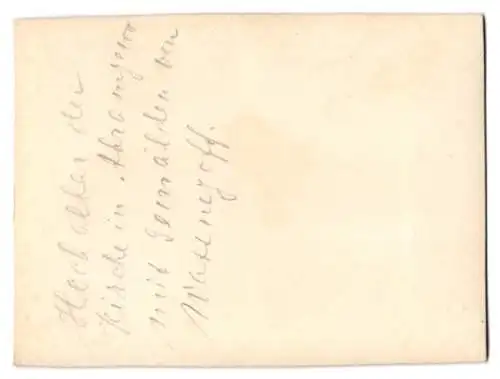 Hochaltar der
Kirche in Abramzewo
mit Gemälden von
Wasnezoff.